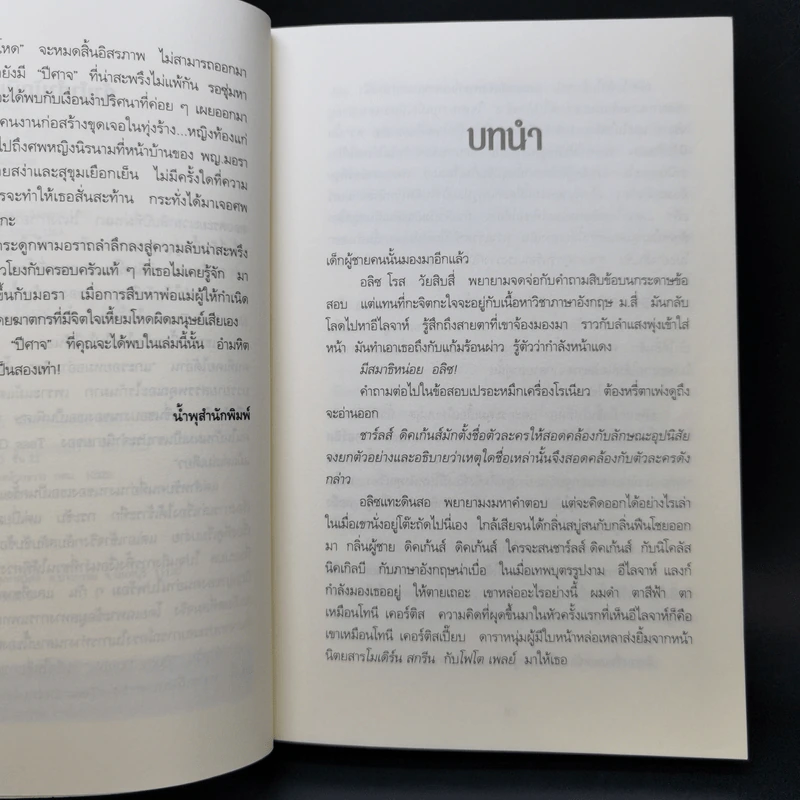 โหด” จะหมดสิ้นอิสรภาพ ไม่สามารถออกมา
ยังมี “ปีศาจ” ที่น่าสะพรึงไม่แพ้กัน รอซุ่มหา
จะได้พบกับเงื่อนงำปริศนาที่ค่อย ๆ เผยออกมา
คนงานก่อสร้างขุดเจอในทุ่งร้าง...หญิงท้องแก่
ไปถึงศพหญิงนิรนามที่หน้าบ้านของ พญ.มอรา
ยสง่าและสุขุมเยือกเย็น ไม่มีครั้งใดที่ความ
รจะทำให้เธอสั่นสะท้าน กระทั่งได้มาเจอศพ
กะ
กระดูกพามอราถลำลึกลงสู่ความลับน่าสะพรึง
วโยงกับครอบครัวแท้ ๆ ที่เธอไม่เคยรู้จัก มา
ขึ้นกับมอรา เมื่อการสืบหาพ่อแม่ผู้ให้กำเนิด
ดยฆาตกรที่มีจิตใจเหี้ยมโหดผิดมนุษย์เสียเอง
“ปีศาจ” ที่คุณจะได้พบในเล่มนี้นั้น อำมหิต
เป็นสองเท่า!
น้ำพุสำนักพิมพ์
บทนำ
เด็กผู้ชายคนนั้นมองมาอีกแล้ว
อลิซ โรส วัยสิบสี่ พยายามจดจ่อกับคำถามสิบข้อบนกระดาษข้อ
สอบ แต่แทนที่กะจิตกะใจจะอยู่กับเนื้อหาวิชาภาษาอังกฤษ ม.สี่ มันกลับ
โลดไปหาอีไลจาห์ รู้สึกถึงสายตาที่เขาจ้องมองมา ราวกับลำแสงพุ่งเข้าใส่
หน้า มันทำเอาเธอถึงกับแก้มร้อนผ่าว รู้ตัวว่ากำลังหน้าแดง
มีสมาธิหน่อย อลิซ!
คำถามต่อไปในข้อสอบเปรอะหมึกเครื่องโรเนียว ต้องหรี่ตาเพ่งดูถึง
จะอ่านออก
ชาร์ลส์ ดิคเก้นส์มักตั้งชื่อตัวละครให้สอดคล้องกับลักษณะอุปนิสัย
จงยกตัวอย่างและอธิบายว่าเหตุใดชื่อเหล่านั้นจึงสอดคล้องกับตัวละครดัง
กล่าว
อลิซแทะดินสอ พยายามงมหาคำตอบ แต่จะคิดออกได้อย่างไรเล่า
ในเมื่อเขานั่งอยู่โต๊ะถัดไปนี่เอง ใกล้เสียจนได้กลิ่นสบู่สนกับกลิ่นฟืนโชยออก
มา กลิ่นผู้ชาย ดิคเก้นส์ ดิคเก้นส์ ใครจะสนชาร์ลส์ ดิคเก้นส์ กับนิโคลัส
นิคเกิลบี กับภาษาอังกฤษน่าเบื่อ ในเมื่อเทพบุตรรูปงาม อีไลจาห์ แลงก์
กำลังมองเธออยู่ ให้ตายเถอะ เขาหล่ออะไรอย่างนี้ ผมดำ ตาสีฟ้า ตา
เหมือนโทนี เคอร์ติส ความคิดที่ผุดขึ้นมาในหัวครั้งแรกที่เห็นอีไลจาห์ก็คือ
เขาเหมือนโทนี เคอร์ติสเปี๊ยบ ดาราหนุ่มผู้มีใบหน้าหล่อเหลาส่งยิ้มจากหน้า
นิตยสารโมเดิร์น สกรีน กับโฟโต เพลย์ มาให้เธอ